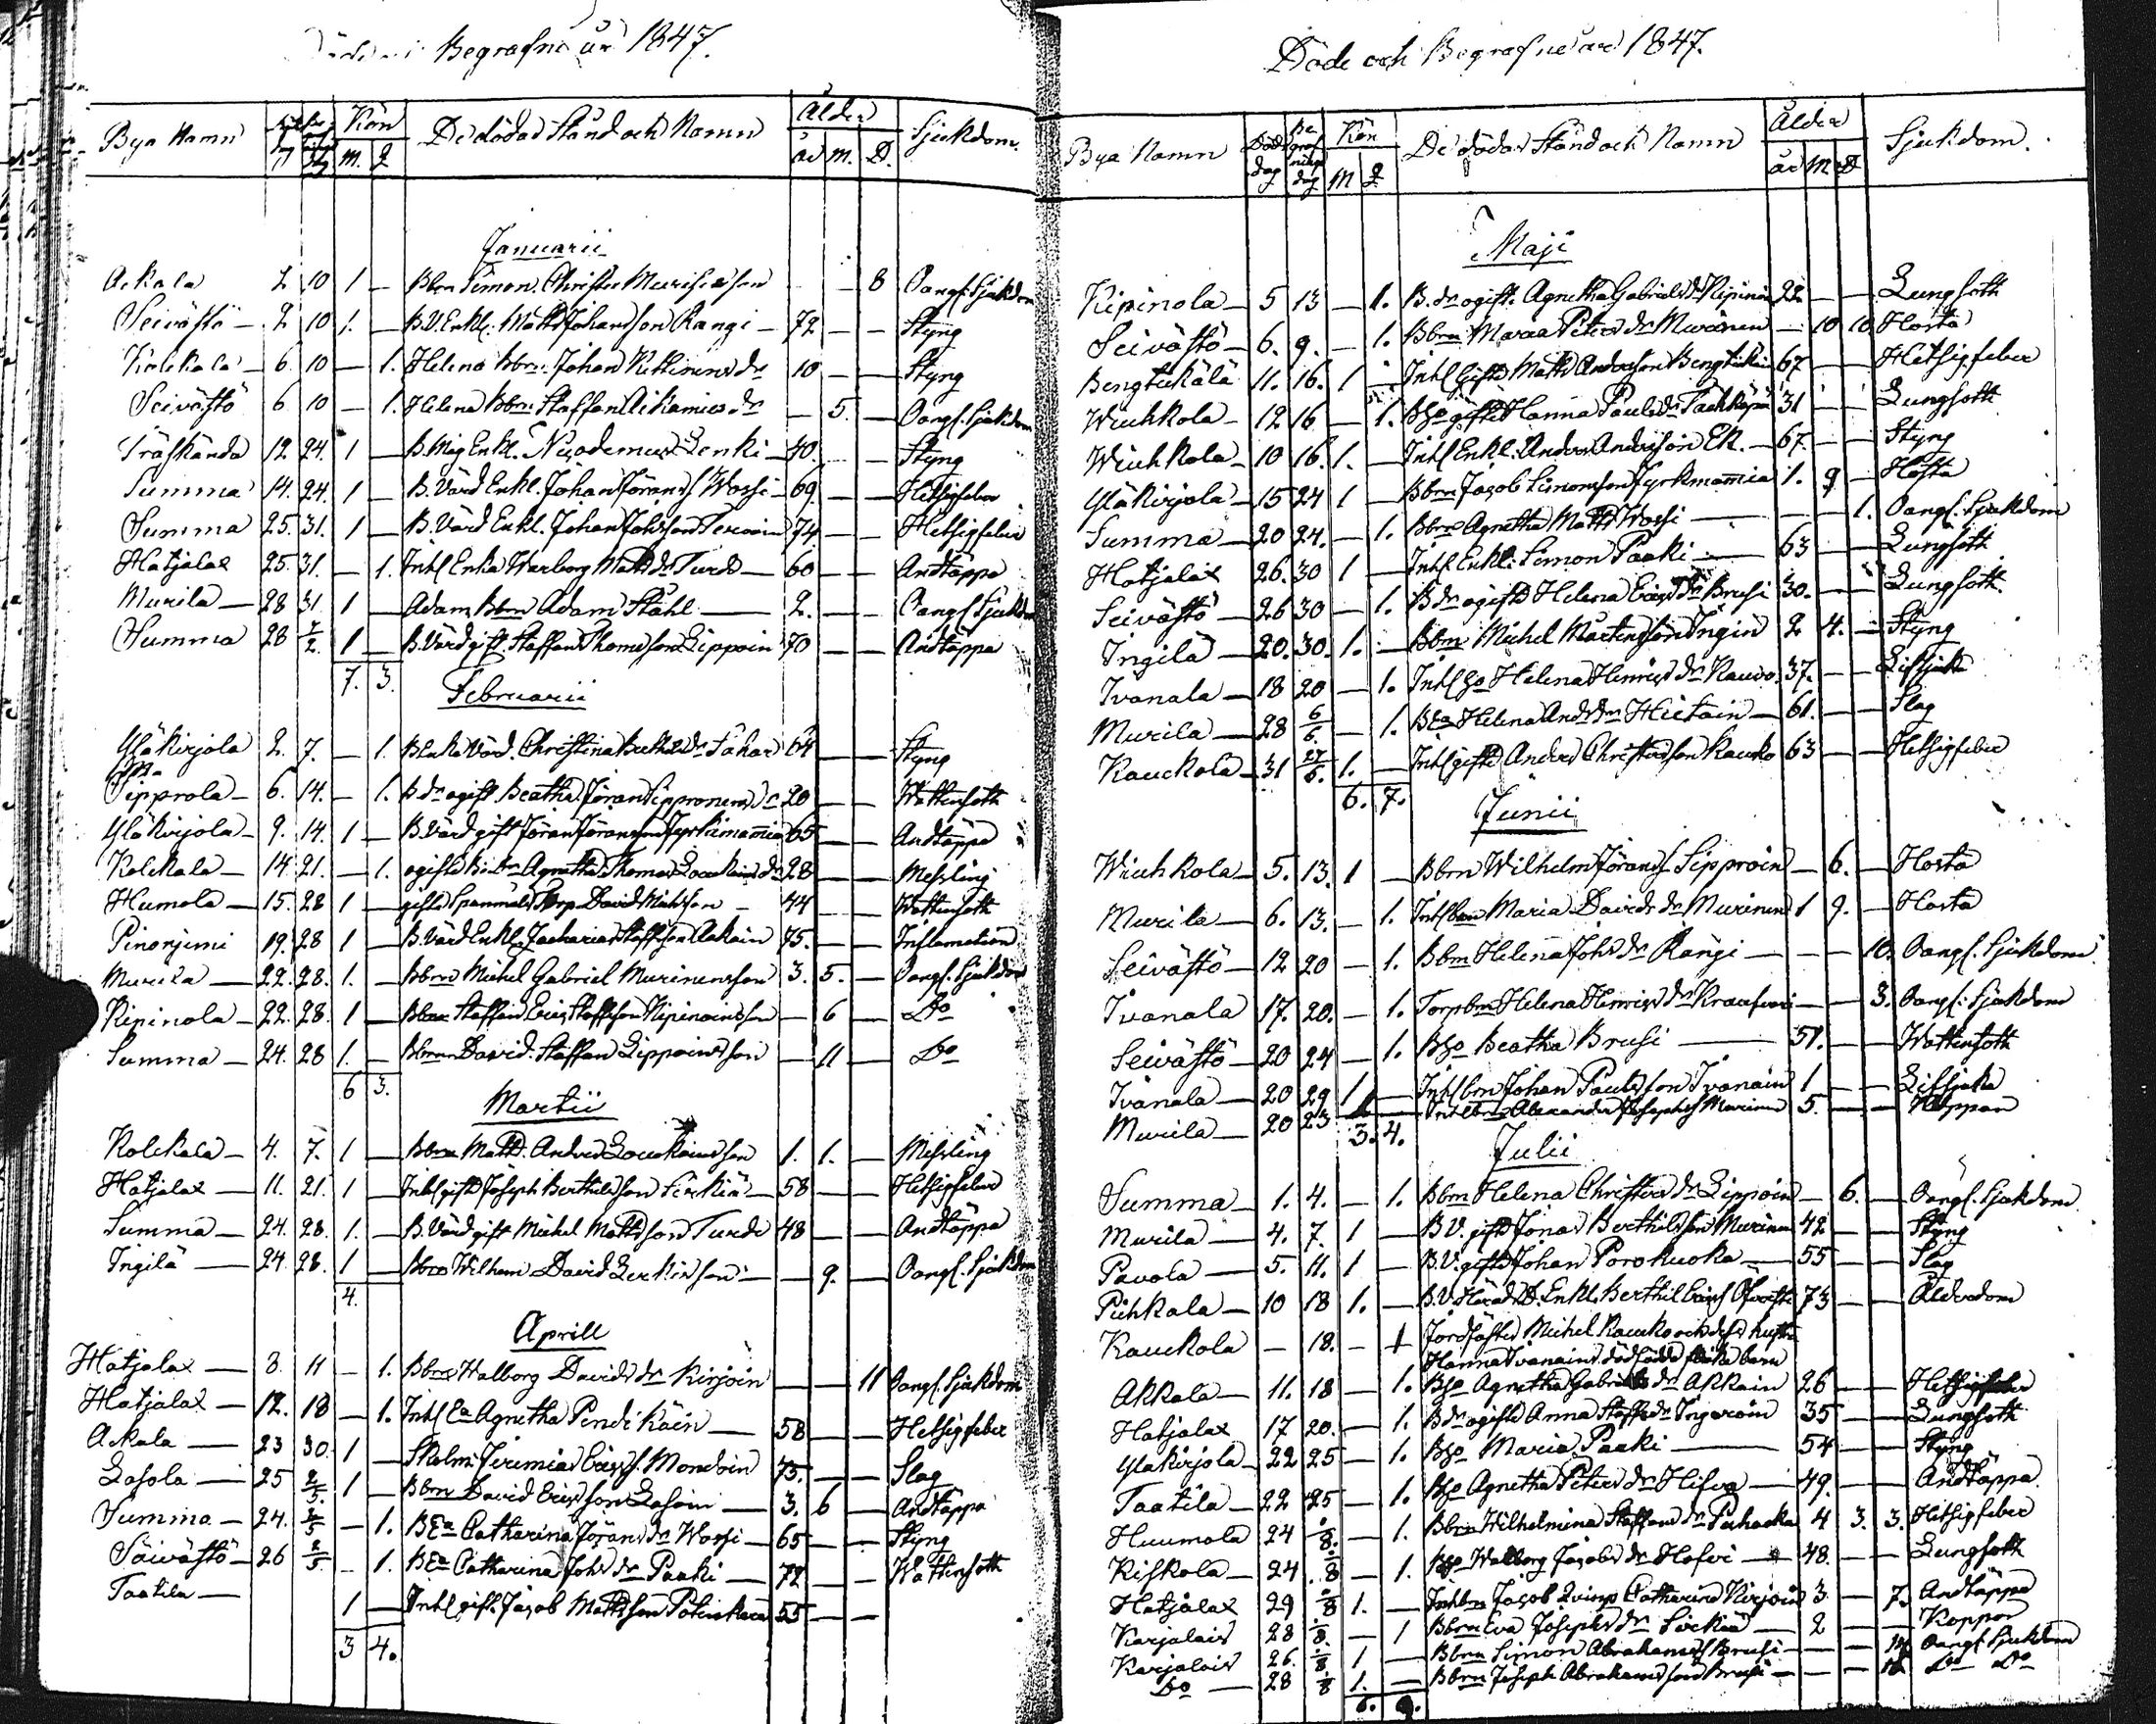 Begrafne år 1847.
Bya Namn Kön De dödas Stånd och Namn Ålder Sjukdom.
M. Q år M. D.
Januarii
Ackala 2 10 1 — Bbrn Simon Christer son 8 Oangf. Sjukdom
Seivästö — 2 10 1. — B.V. Enkl. Matts Johansson Rangi — 72 — — Styng
6 10 — 1. Helena Bbrn Johan dr 10 — — Styng
Seivästö 6 10 — 1. Helena Bbrn Staffan dr — 5. — Oangf. Sjukdom
Träskända 12 24. 1 — B. Måg Enkl. — 40. — — Styng
Summa 14. 24. 1 — B. Värd Enkl. Johan Jöranss Wossi — 69. — — Hetsigfeber
Summa 25. 31. 1 — B. Värd Enkl. Johan 74. — — Hetsigfeber
Hatjalax 25. 31. — 1. Inhl Enka Walborg Matts dr Turde — 60 — — Andtäppa
Murila — 28 31 1 — Adam Bbrn Adam Ståhl — 2. — — Oangf. Sjukdom
Summa 28 7/2 1 — B. Värd gift. Staffan Thomasson Lippoin 70 — — Andtäppa
7. 3.
Februarii
Yläkirjola 2. 7. — 1. B Enka Värd. Christina dr 64 — — Styng
Sipprola — 6. 14. — 1. B dr ogift Beatha Jöran dr 20 — — Wattensoth
Yläkirjola — 9. 14. 1 — B. Värd gift Jöran Jöransson 65 — — Andtäppa
Kolckala — 14. 21. — 1. ogifte Agnetha Thomas dr 28 — — Messling
Humola — 15. 28 1 — gifte David — 44 — — Wattensoth
Pinonjemi 19. 28 1 — B. Värd Enkl. Zacharias 75. — — Inflamation
Murila — 22. 28. 1. — Bbrn Michel Gabriel Murinensson 3. 5. — Oangf. Sjukdom
Kipinola — 22. 28. 1 — Bbrn Staffan Eric Staffsson Kipinoinsson — 6 — Do
Summa — 24. 28 1. — Bbrn David. Staffan Lippoins son — 11 — Do
6 3.
Martii
Kolckala — 4. 7. 1 — Bbrn Matts. Anders Louckainsson 1. 1. — Messling
Hatjalax — 11. 21. 1 — Inhl gift Joseph Berthilsson — 58 — — Hetsigfeber
Summa — 24. 28. 1. — B. Värd gift Michel Mattsson Turde 48 — — Andtäppa
Ingilä — 24. 28. 1 — Bbrn Wilhelm David son — 9. — Oangf. Sjukdom
4.
Aprill
Hatjalax — 8. 11 — 1. Bbrn Walborg Davids dr Kirjoin — — 11 Oangf. Sjukdom
Hatjalax — 12. 18 — 1. Inhl Ea Agnetha Pendikäin — 58 — — Hetsigfeber
Ackala — 23 30. 1 — Skolm. Jeremias Ericss. Mondoin 75. — — Slag
Lasola — 25 2/5. 1 — Bbrn David Ericsson Lasoin — 3. 6 — Andtäppa
Summa — 24. 2/5 — 1. BEa Catharina Jörans dr Wossi — 65 — — Styng
Säivästö — 26 2/5 — 1. BEa Catharina Johs dr Paaki — 72 — — Wattensoth
Taatila — 1 — Inhl gift. Jacob Mattsson 55 — —
3 4.
Döde och Begrafne år 1847.
Bya Namn Död dag Begrafnings dag Kön De dödas Stånd och Namn Ålder Sjukdom.
M Q år M D
Maji
Kipinola — 5 13 — 1. B. dr ogift. Agnetha Gabriels dr 22 — — Lungsoth
Seivästö — 6. 9. — 1. Bbrn Maria Peters dr Murinen — 10 10 Hosta
Bengtukälä 11. 16. 1 — Inhl Gifte Matts Andersson 67 — — Hetsigfeber
Wiuhkola — 12 16 — 1. Bho gifte Hanna Pauls dr 31 — — Lungsoth
Wiuhkola — 10 16. 1. — Inhl Enkl. Anders Andersson Ek. — 67. — — Styng
Yläkirjola — 15 24 1 — Bbrn Jacob Simonsson 1. 9 — Hosta
Summa — 20 24. — 1. Bbrn Agnetha Matts Wossi — — — 1. Oangf. Sjukdom
Hatjalax — 26. 30 1 — Inhl. Enkl. Simon Paaki — 63 — — Lungsoth
Seivästö — 26 30 — 1. B dr ogifte Helena Erics dr Brusi 30. — — Lungsoth.
Ingilä — 20. 30. 1. — Bbrn Michel Mårtensson Ingin 2 4. — Styng
Ivanala — 18 20 — 1. Inhl ho Helena Henrics dr 37. — —
Murila — 28 6/6. — 1. BEa Helena Anders dr Hietain — 61. — — Slag
Kauckola — 31 27/6. 1. — Inhl gifte Anders Christersson Kauko 63 — — Hetsigfeber
6. 7.
Junii
Wiuhkola — 5. 13. 1 — Bbrn Wilhelm Jörans Sipproin — 6. — Hosta
Murila — 6. 13. — 1. Inhl barn Maria Davids dr Murinen 1 9. — Hosta
Seivästö — 12 20 — 1. Bbrn Helena Johs dr Rangi — — — 10. Oangf. Sjukdom
Ivanala 17. 20. — 1. Torp brn Helena Henrics dr — — 3. Oangf. Sjukdom
Seivästö — 20 24 — 1. Bho Beatha Brusi — 51. — — Wattensoth
Ivanala — 20 29 1 — Inhl brn Johan Paulsson Ivanain 1 — —
Murila — 20 25 1 — Inhl brn Alexander Josephs Murinen 5. — — Koppor
3. 4.
Julii
Summa — 1. 4. — 1. Bbrn Helena Christers dr Lippoin — 6. — Oangf. Sjukdom
Murila — 4. 7. 1 — B V. gifte Jonas Berthilsson Murinen 42 — — Styng
Pavola — 5. 11. 1 — B.V. gifte Johan Porokuoka — 55 — — Slag
Pihkala — 10 18 1. — B.V. Enkl. Berthil Erics 73 — — Ålderdom
Kauckola — 18. — 1 Jordfästes Michel Kauko och dess hustru
Hanna Ivanains dödfödde flicka barn
Akkala — 11. 18 — 1. Bho Agnetha Gabriels dr Akkain 26 — — Hetsigfeber
Hatjalax 17 20. — 1. B dr ogifte Anna Staffs dr Ingeroin 35 — — Lungsoth
Yläkirjola — 22 25 — 1. Bho Maria Paaki — 54 — — Styng
Taatila — 22 25 — 1. Bho Agnetha Peters dr Hifva — 49. — — Andtäppa
Huumola 24 /8. — 1. Bbrn Wilhelmina Staffans dr 4 3. 3. Hetsigfeber
Kiskola — 24 /8 — 1. Bho Walborg Jacobs dr Hofvi — 48. — — Lungsoth
Hatjalax 29 /8 1. — Jacob Catharina Kirjoin 3 — 7. Andtäppa
Karjalais 28 /8 — 1 Bbrn Eva Josephs dr — 2 — — Koppor
Karjalais 26. /8 1 — Bbrn Simon Abrahams Brusi — — — Oangf. Sjukdom
Do — 28 /8 1. — Bbrn Joseph Abrahamsson Brusi — — — Do Do
6. 9.